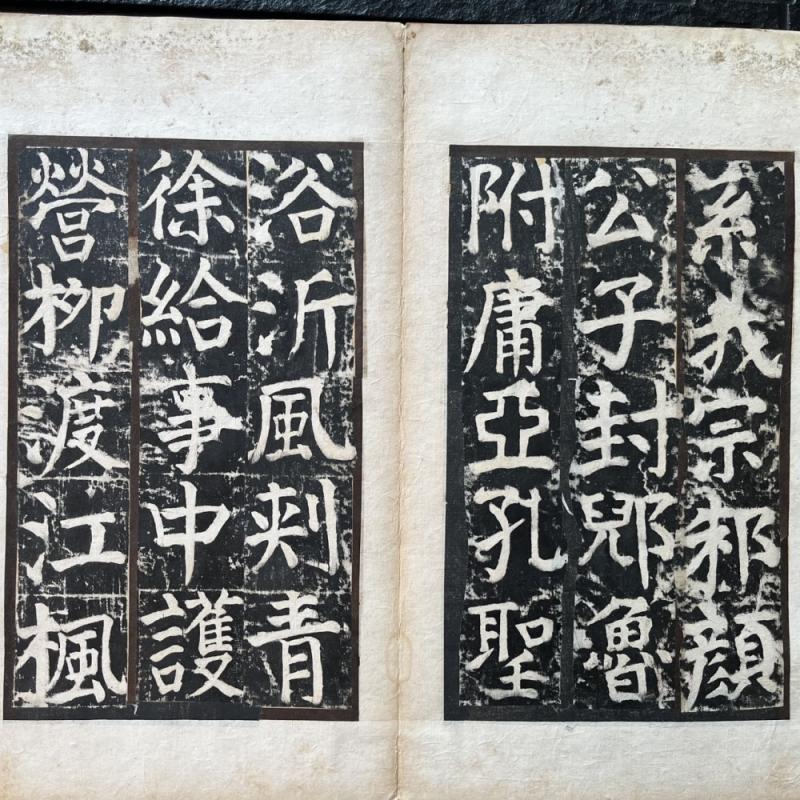 系我宗邾顏
公子封郳魯
附庸亞孔聖
浴沂風刾青
徐給事中護
營柳渡江楓